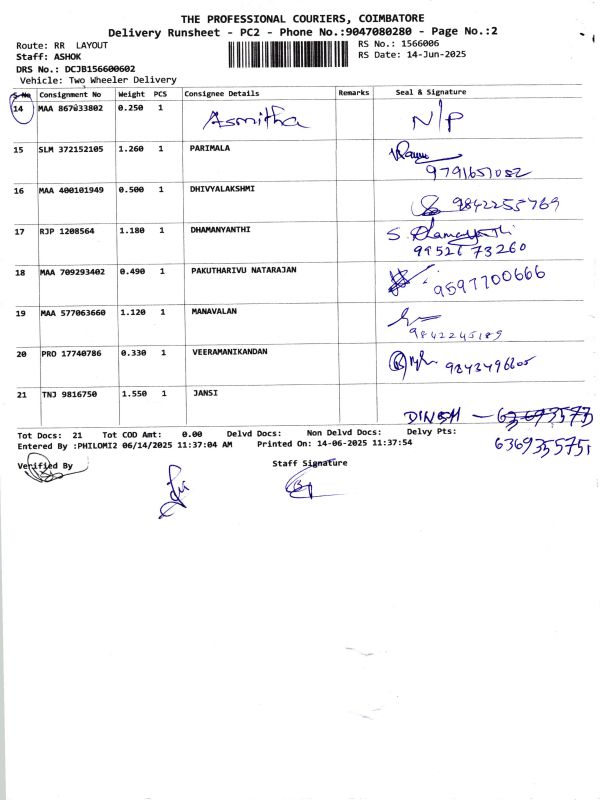 THE PROFESSIONAL COURIERS, COIMBATORE
Delivery Runsheet - PC2 - Phone No.:9047080280 - Page No.:2
Route: RR LAYOUT
RS No.: 1566006
Staff: ASHOK
RS Date: 14-Jun-2025
DRS No.: DCJB156600602
Vehicle: Two Wheeler Delivery
S No Consignment No Weight PCS Consignee Details Remarks Seal & Signature
14 MAA 867033802 0.250 1 Asmitha N/P
15 SLM 372152105 1.260 1 PARIMALA
9791651082
16 MAA 400101949 0.500 1 DHIVYALAKSHMI 9842255769
17 RJP 1208564 1.180 1 DHAMANYANTHI S. Dhamayanthi
99526 73260
18 MAA 709293402 0.490 1 PAKUTHARIVU NATARAJAN 9597700666
19 MAA 577063660 1.120 1 MANAVALAN
9842245189
20 PRO 17740786 0.330 1 VEERAMANIKANDAN 9843496605
21 TNJ 9816750 1.550 1 JANSI
DINESH -
Tot Docs: 21 Tot COD Amt: 0.00 Delvd Docs: Non Delvd Docs: Delvy Pts:
6369355751
Entered By :PHILOMI2 06/14/2025 11:37:04 AM Printed On: 14-06-2025 11:37:54
Verified By Staff Signature